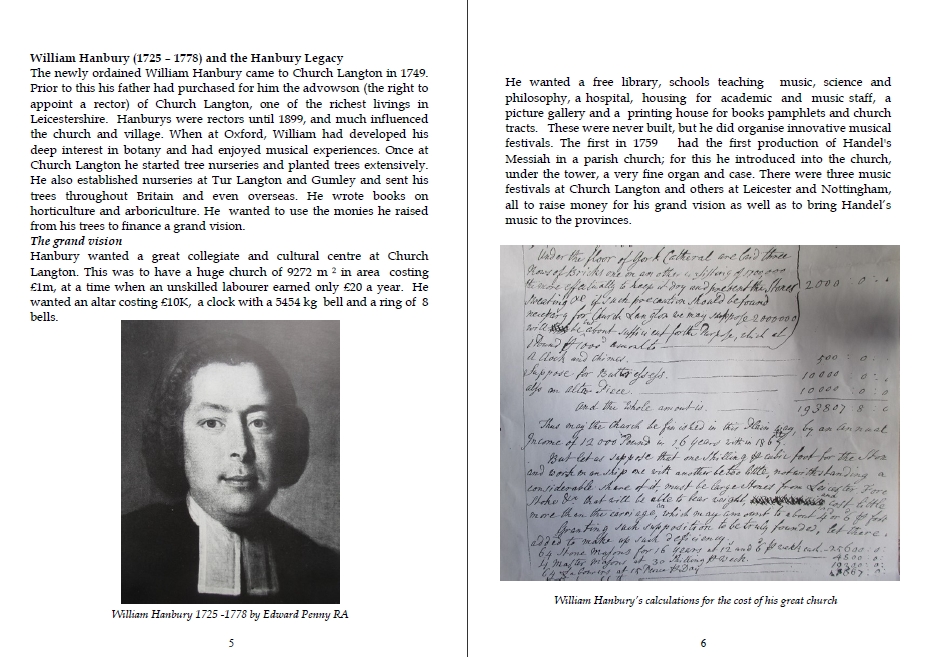 William Hanbury (1725 – 1778) and the Hanbury Legacy
The newly ordained William Hanbury came to Church Langton in 1749.
Prior to this his father had purchased for him the advowson (the right to
appoint a rector) of Church Langton, one of the richest livings in
Leicestershire. Hanburys were rectors until 1899, and much influenced
the church and village. When at Oxford, William had developed his
deep interest in botany and had enjoyed musical experiences. Once at
Church Langton he started tree nurseries and planted trees extensively.
He also established nurseries at Tur Langton and Gumley and sent his
trees throughout Britain and even overseas. He wrote books on
horticulture and arboriculture. He wanted to use the monies he raised
from his trees to finance a grand vision.
The grand vision
Hanbury wanted a great collegiate and cultural centre at Church
Langton. This was to have a huge church of 9272 m ² in area costing
£1m, at a time when an unskilled labourer earned only £20 a year. He
wanted an altar costing £10K, a clock with a 5454 kg bell and a ring of 8
bells.
William Hanbury 1725 -1778 by Edward Penny RA
5
He wanted a free library, schools teaching music, science and
philosophy, a hospital, housing for academic and music staff, a
picture gallery and a printing house for books pamphlets and church
tracts. These were never built, but he did organise innovative musical
festivals. The first in 1759 had the first production of Handel's
Messiah in a parish church; for this he introduced into the church,
under the tower, a very fine organ and case. There were three music
festivals at Church Langton and others at Leicester and Nottingham,
all to raise money for his grand vision as well as to bring Handel's
music to the provinces.
Under the floor of York Catheral are laid three
Rows of Bricks one on an other consisting of
the more effectually to keep it dry and prevent the Stones 2000 : 0 :
Sweating &c if such precaution should be found
necessary for Church Langton we may suppose 2000000
will be about sufficient for the Purpose, which at
1 Pound 1000 amounts
A Clock and Chimes. 500 : 0 :
Suppose for Buttresses. 10000 : 0 :
also an Altar Piece. 10000 : 0 :
And the Whole amount is. 193807 8 0
Thus may the Church be finished in this Plain way, by an annual
Income of 12000 Pound in 16 years
But let us suppose that one shilling cubic foot for the Stone
and workmanship one with another be too little, notwithstanding a
considerable share of it must be large Stones from Leicester Forest
Stoke &c that will be able to bear weight, and cost little
more than the carriage, which may amount to about 4 or 6 foot
Granting such supposition to be truly founded, let there,
added to make up such deficiency.
64 Stone Masons for 16 Years at 12 and 6 week
4 Master Masons at 30 Shilling Week.
Labourers at 15 Pence Day
William Hanbury's calculations for the cost of his great church
6